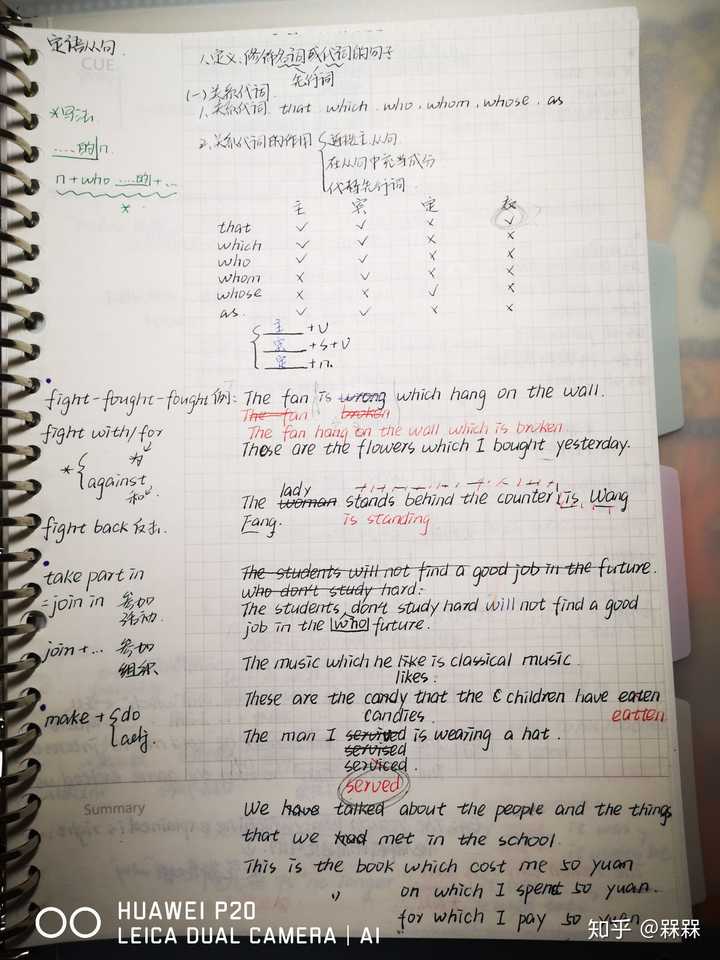 定语从句
CUE
1、定义、修饰名词或代词的句子
先行词
(一)关系代词
*写法
1.关系代词. that which. who, whom, whose. as
2.关系代词的作用 连接主从句
在从句中充当成份
代替先行词
……的n.
n + who ……的+…
*
主 宾 定 表
that ✓ ✓ × ✓
which ✓ ✓ × ×
who ✓ ✓ × ×
whom × ✓ × ×
whose × × ✓ ×
as. ✓ ✓ × ×
主 + v
宾 + s + v
定 + n.
fight-fought-fought 例: The fan is wrong which hang on the wall.
The fan broken
fight with/for The fan hang on the wall which is broken
为
These are the flowers which I bought yesterday.
* against
和
lady
The woman stands behind the counter is Wang
Fang. is standing
fight back 反击.
take part in The students will not find a good job in the future.
who don't study hard.
=join in 参加 The students don't study hard will not find a good
活动. job in the who future.
join+… 参加
组织 The music which he like is classical music.
likes.
These are the candy that the children have eaten
candies. eatten
make + do
adj. The man I servived is wearing a hat.
servised
serviced.
served
Summary
We have talked about the people and the things
that we had met in the school.
This is the book which cost me 50 yuan
〃 on which I spent 50 yuan.
〃 for which I pay 50 yuan
HUAWEI P20
LEICA DUAL CAMERA | AI
知乎 @槑槑